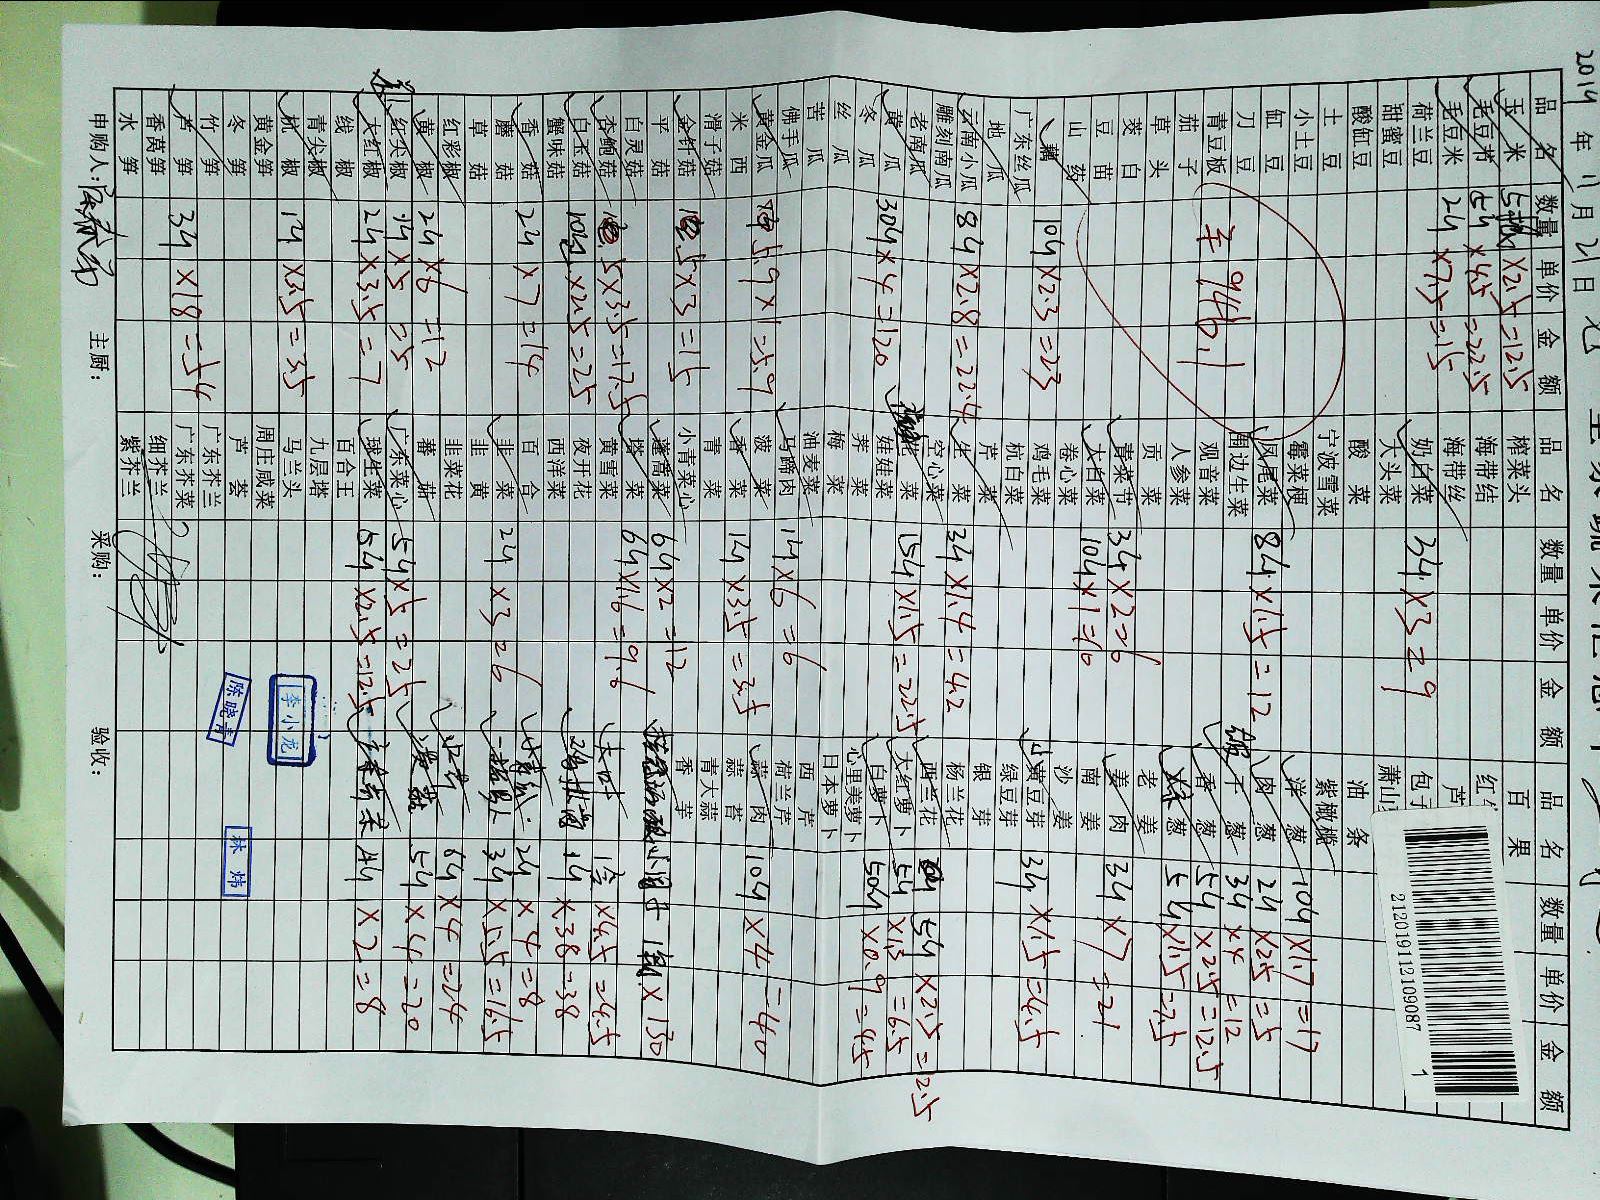 2014年11月21日
品名 数量 单价 金额 品名 数量 单价 金额 品名 数量 单价 金额
玉米 5斤×2.5=12.5 榨菜头 百果
毛豆节 5斤×4.5=22.5 海带结
毛豆米 2斤×7.5=15 海带丝
荷兰豆 奶白菜 3斤×3=9
甜蜜豆 大头菜 萧山
酸缸豆 酸菜 油条
土豆 宁波雪菜 紫橄榄
小土豆 霉菜梗 洋葱 10斤×1.7=17
缸豆 凤尾菜 8斤×1.5=12 肉葱 2斤×2.5=5
刀豆 围边生菜 干葱 3斤×4=12
青豆板 ¥946.1 观音菜 香葱 5斤×2.5=12.5
茄子 人参菜 葱 5斤×1.5=7.5
草头 贡菜 老姜
茭白 青菜节 3斤×2=6 姜肉 3斤×7=21
豆苗 大白菜 10斤×1=10 南姜
山药 卷心菜 沙姜
藕 10斤×2.3=23 鸡毛菜 黄豆芽 3斤×1.5=4.5
广东丝瓜 杭白菜 绿豆芽
地瓜 芹菜 银芽
云南小瓜 8斤×2.8=22.4 生菜 3斤×1.4=4.2 杨兰花
雕刻南瓜 空心菜 西兰花 5斤×2.5=12.5
老南瓜 菜 15斤×1.5=22.5 大红萝卜 5斤×1.3=6.5
黄瓜 30斤×4=120 娃娃菜 白萝卜 50斤×0.9=45
冬瓜 荠菜 心里美萝卜
丝瓜 梅菜 日本萝卜
苦瓜 油麦菜 西芦
佛手瓜 马蹄肉 1斤×6=6 荷兰芹
黄金瓜 5.9×1=5.9 菠菜 蒜肉 10斤×4=40
米西 香菜 1斤×3.5=3.5 蒜苔
滑子菇 青菜 青大蒜
金针菇 5×3=15 小青菜心 香芋
平菇 蓬蒿菜 6斤×2=12 ×130
白灵菇 塔菜 6斤×1.6=9.6
杏鲍菇 5×3.5=17.5 黄雪菜 ×4.5=4.5
白玉菇 10斤×2.5=25 夜开花 1斤×38=38
蟹味菇 西洋菜
香菇 2斤×7=14 百合 2斤×4=8
蘑菇 韭菜 2斤×3=6 3斤×5.5=16.5
草菇 韭黄
红彩椒 韭菜花 6斤×4=24
黄椒 2斤×6=12 蕃茄 5斤×4=20
红尖椒 1斤×5=5 广东菜心 5斤×5=25
大红椒 2斤×3.5=7 球生菜 5斤×2.5=12.5 4斤×2=8
线椒 百合王
青尖椒 九层塔
杭椒 1斤×3.5=3.5 马兰头
黄金笋 周庄咸菜
冬笋 芦荟
竹笋 广东芥兰
芦笋 3斤×18=54 广东芥菜
香莴笋 细芥兰
水笋 紫芥兰
申购人: 主厨: 采购: 验收:
李小龙
陈晓青
林炜
2120191121090871